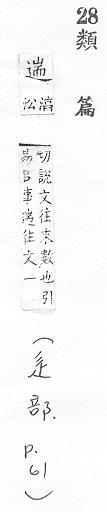 28
類篇
遄
切說文往來數也引
易曰事遄往文一
(辵部. p. 61)